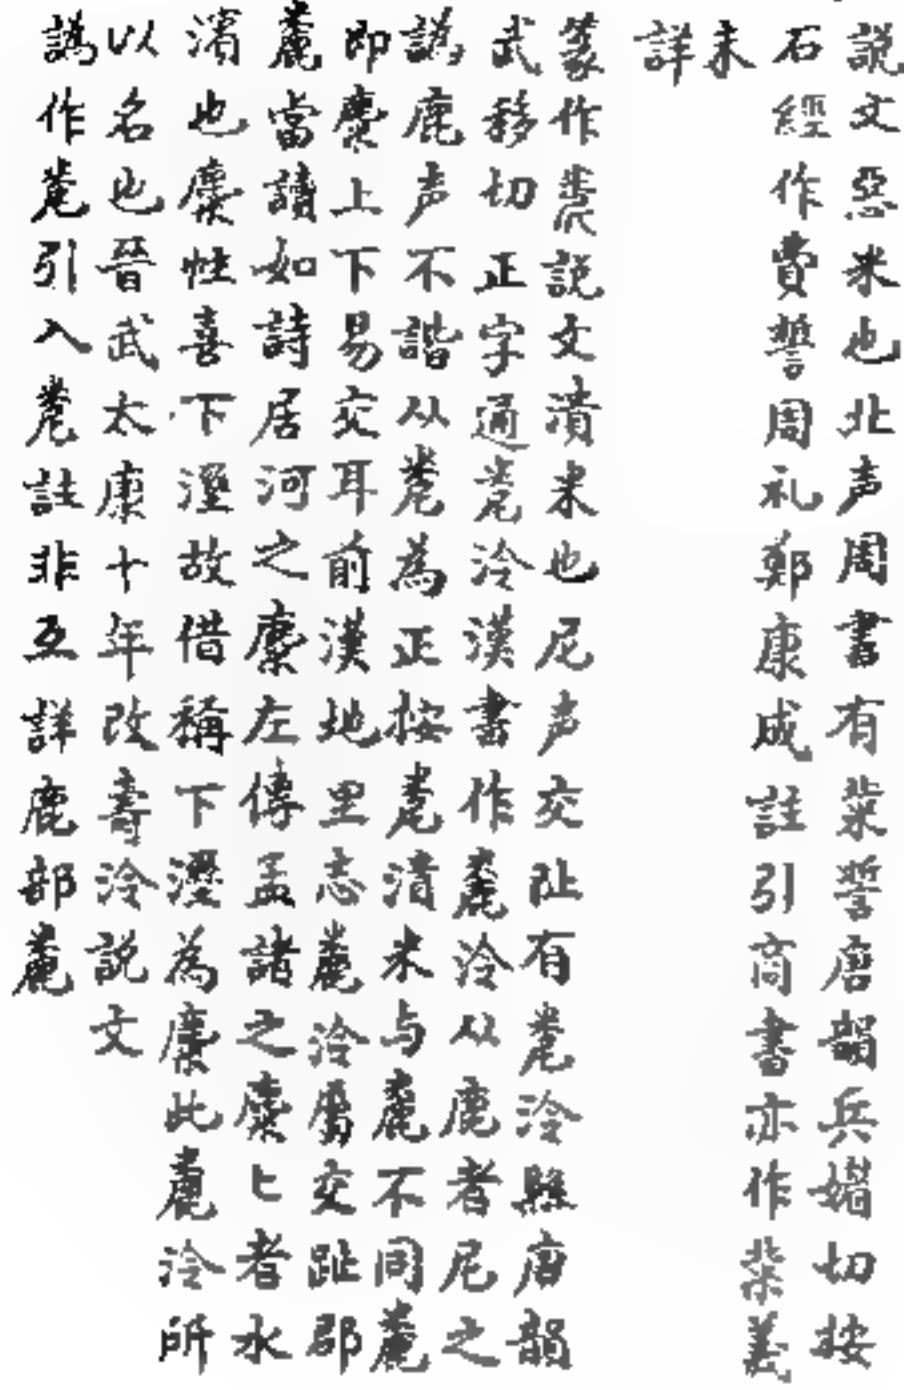 説文惡米也北声周書有粊誓唐韻兵媚切按
石經作費誓周礼鄭康成註引商書亦作粊義
未
詳
篆作䉳説文潰米也尼声交阯有䉳泠縣唐韻
武移切正字通䉳泠漢書作麊泠从鹿者尼之
譌鹿声不諧从䉳為正按䉳潰米与麊不同麊
即麋上下易交耳前漢地里志麊泠屬交趾郡
麊當讀如詩居河之麋左傳孟諸之麋匕者水
濱也麋性喜下溼故借稱下溼為麋此麊泠所
以名也晉武太康十年改壽泠説文
譌作䉳引入䉳註非互詳鹿部麊